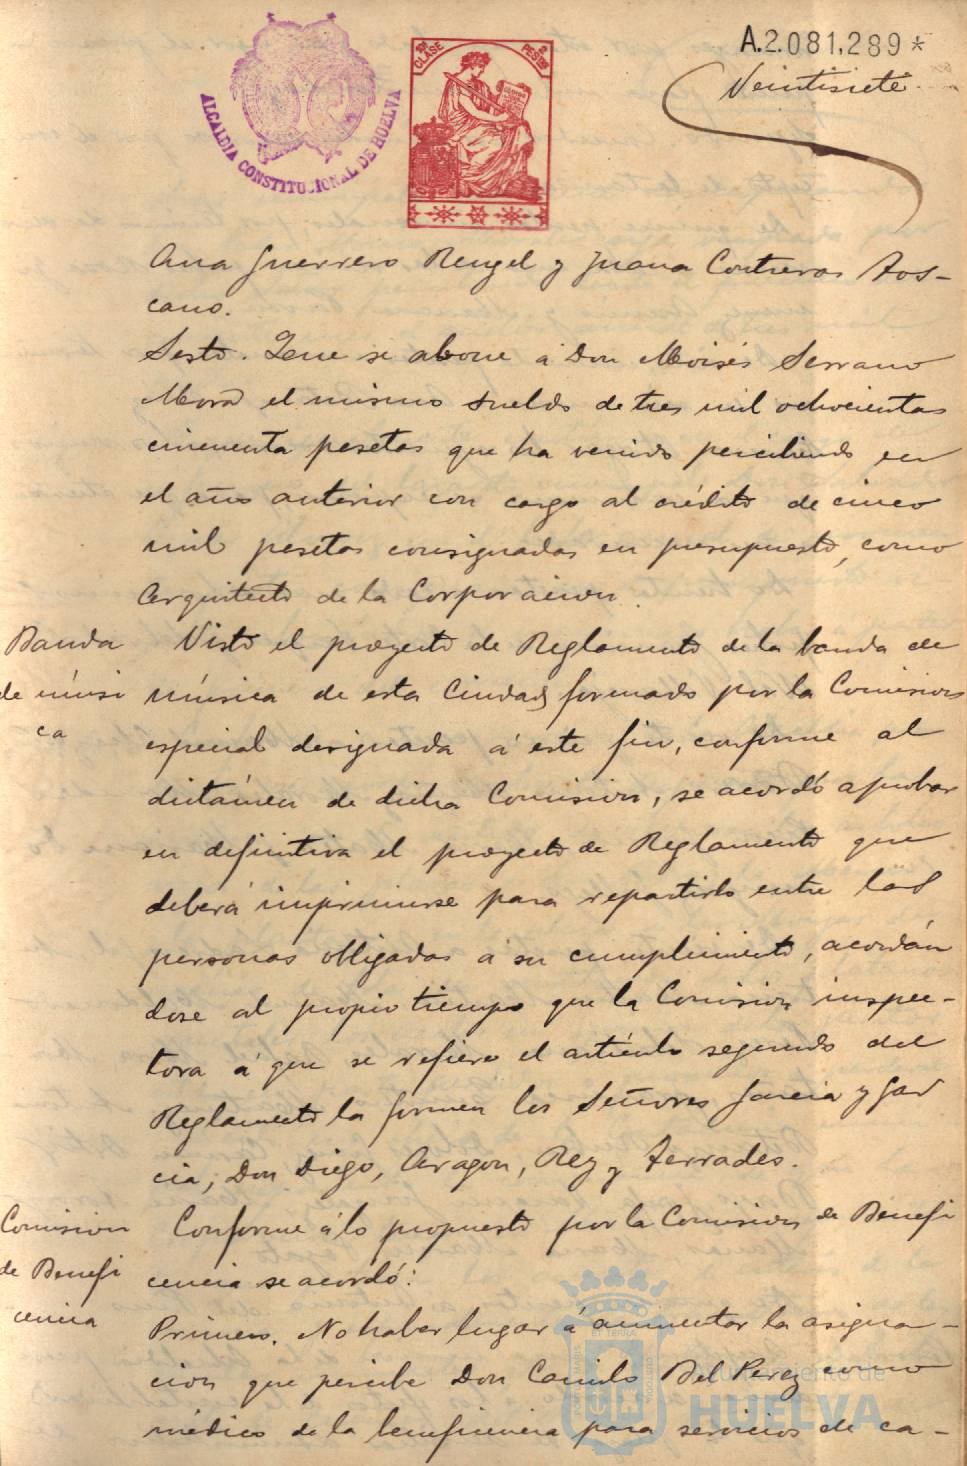 A.2.081,289*
Veintisiete
ALCALDIA CONSTITUCIONAL DE HUELVA
10ª CLASE
2 PESETAS
Ana Guerrero Rengel y Juana Contreras Tos-
cano.
Sesto. Que se abone á Don Moisés Serrano
Mora el mismo sueldo de tres mil ochocientas
cincuenta pesetas que ha venido percibiendo en
el año anterior con cargo al crédito de cinco
mil pesetas consignadas en presupuesto, como
Arquitecto de la Corporacion.
Banda
de músi
ca
Visto el proyecto de Reglamento de la banda de
música de esta Ciudad formado por la Comision
especial designada á este fin, conforme al
dictámen de dicha Comision, se acordó aprobar
en definitiva el proyecto de Reglamento que
deberá imprimirse para repartirlo entre las
personas obligadas á su cumplimiento, acordán
dose al propio tiempo que la Comision inspec-
tora á que se refiere el artículo segundo del
Reglamento la formen los Señores Garcia y Gar
cia, Don Diego, Aragon, Rey y Terrades.
Comision
de Benefi
cencia
Conforme á lo propuesto por la Comision de Benefi
cencia se acordó:
Primero. No haber lugar á aumentar la asigna-
cion que percibe Don Camilo Bel Perez como
médico de la beneficencia para servicios de ca-
Ayuntamiento de
HUELVA